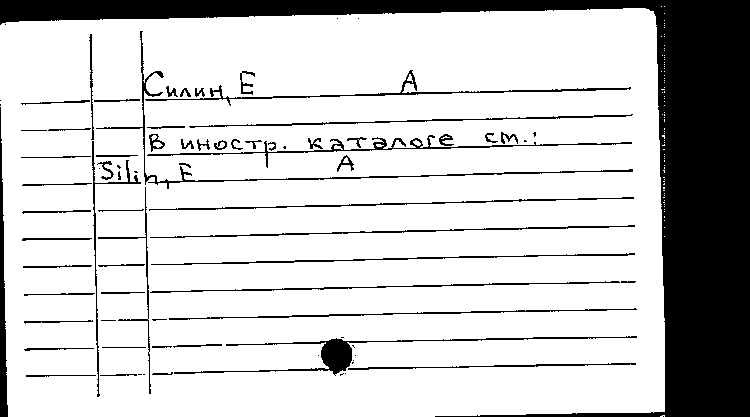 Силин, Е А
В иностр. каталоге см.:
Silin, E А